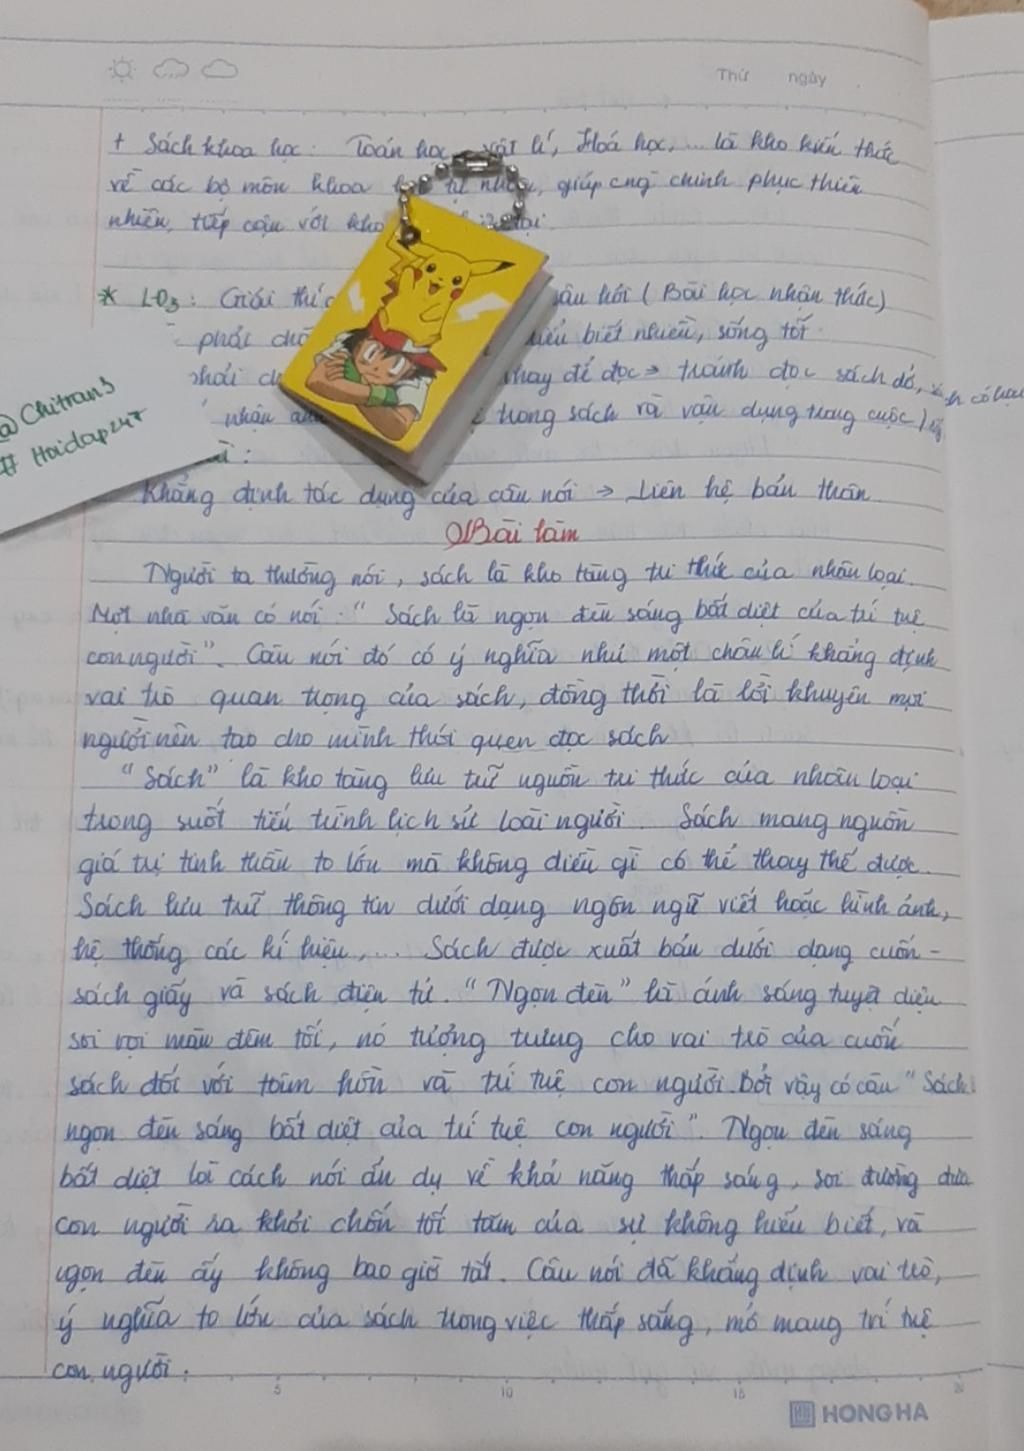 Thứ ngày
+ Sách khoa học: Toán học, vật lí, Hoá học,... là kho kiến thức
về các bộ môn khoa học tự nhiên, giúp cng chinh phục thiên
nhiên, tiếp cận với kho
* LĐ3: Giải thíc câu hỏi (Bài học nhận thức)
phải chă hiểu biết nhiều, sống tốt
phải hay để đọc → tránh đọc sách dở,
nhận trong sách rà vận dụng trong cuộc
@Chitran3
# Hoidap247
Khẳng định tác dụng của câu nói → Liên hệ bản thân
Bài làm
Người ta thường nói, sách là kho tàng tri thức của nhân loại.
Một nhà văn có nói: "Sách là ngọn đèn sáng bất diệt của trí tuệ
con người". Câu nói đó có ý nghĩa như một chân lí khẳng định
vai trò quan trọng của sách, đồng thời là lời khuyên mọi
người nên tạo cho mình thói quen đọc sách
"Sách" là kho tàng lưu trữ nguồn tri thức của nhân loại
trong suốt tiến trình lịch sử loài người. Sách mang nguồn
giá trị tinh thần to lớn mà không điều gì có thể thay thế được.
Sách lưu trữ thông tin dưới dạng ngôn ngữ viết hoặc hình ảnh,
hệ thống các kí hiệu,... Sách được xuất bản dưới dạng cuốn -
sách giấy và sách điện tử. "Ngọn đèn" là ánh sáng tuyệt diệu
soi rọi màn đêm tối, nó tượng trưng cho vai trò của cuốn
sách đối với tâm hồn và trí tuệ con người. Bởi vậy có câu "Sách
ngọn đèn sáng bất diệt của trí tuệ con người". Ngọn đèn sáng
bất diệt là cách nói ẩn dụ về khả năng thắp sáng, soi đường đưa
con người ra khỏi chốn tối tăm của sự không hiểu biết, và
ngọn đèn ấy không bao giờ tắt. Câu nói đã khẳng định vai trò,
ý nghĩa to lớn của sách trong việc thắp sáng, mở mang trí tuệ
con người.
5 10 15 20
HONG HA